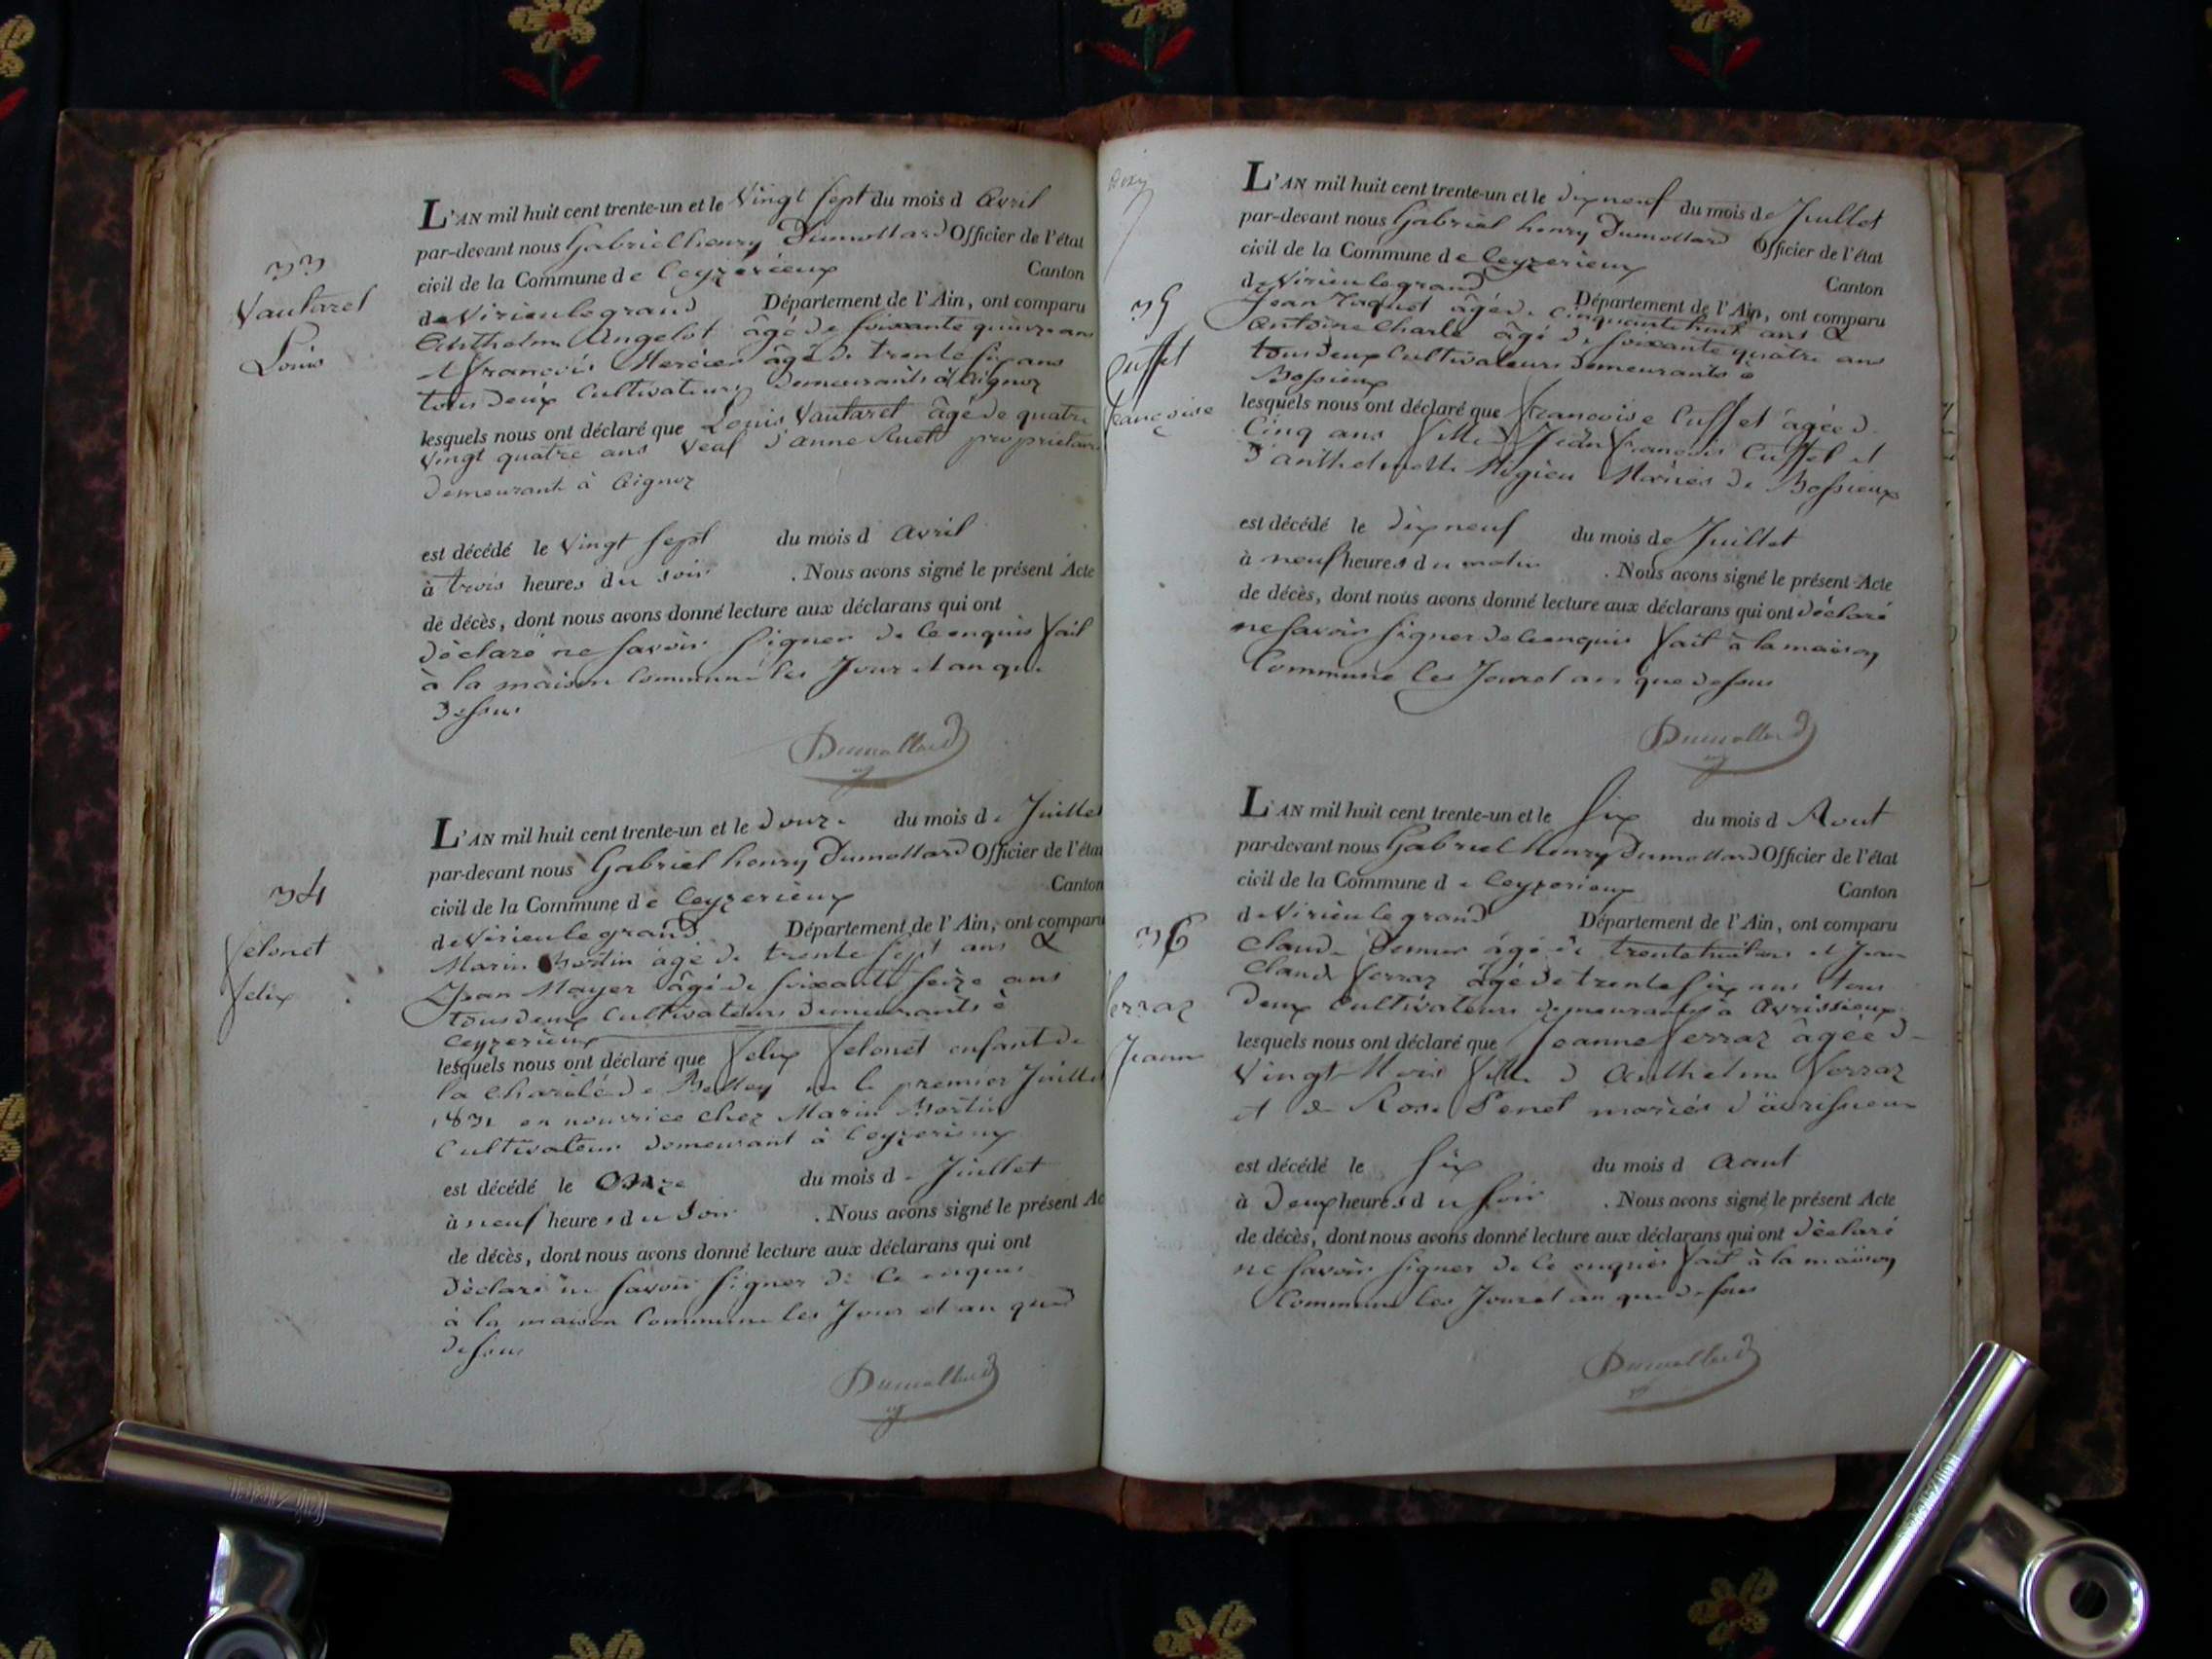 33
Vautaret
Louis
L'AN mil huit cent trente-un et le Vingt sept du mois d Avril
par-devant nous Gabriel henry Dumollard Officier de l'état
civil de la Commune de Ceyzérieux Canton
de Virieu le grand Département de l'Ain, ont comparu
Anthelme Angelot âgé de soixante quinze ans
et francois Mercier âgé de trente six ans
tous deux Cultivateurs demeurants à Aignoz
lesquels nous ont déclaré que Louis Vautaret âgé de quatre
Vingt quatre ans Veuf d'anne Ruet propriétaire
demeurant à Aignoz
est décédé le Vingt sept du mois d Avril
à trois heures du soir . Nous avons signé le présent Acte
de décès, dont nous avons donné lecture aux déclarans qui ont
déclaré ne savoir signer de ce enquis fait
à la maison Commune les Jour et an que
dessus
Dumollard
34
felonet
felix
L'AN mil huit cent trente-un et le douze du mois de Juillet
par-devant nous Gabriel henry Dumollard Officier de l'état
civil de la Commune de Ceyzerieux Canton
de Virieu le grand Département de l'Ain, ont comparu
Marin Bortin âgé de trente sept ans &
Jean Mayer âgé de soixante seize ans
tous deux Cultivateurs demeurants à
Ceyzerieux
lesquels nous ont déclaré que felix felonet enfant de
la charité de Belley né le premier Juillet
1831 en nourrice chez Marin Bortin
Cultivateur demeurant à Ceyzerieux
est décédé le Onze du mois de Juillet
à neuf heures du Soir . Nous avons signé le présent Ac
de décès, dont nous avons donné lecture aux déclarans qui ont
déclaré ne savoir signer de ce enquis
à la maison Commune les Jour et an que
dessus
Dumollard
35
Cuffet
francoise
L'AN mil huit cent trente-un et le dix neuf du mois de Juillet
par-devant nous Gabriel henry Dumollard Officier de l'état
civil de la Commune de Ceyzerieux Canton
de Virieu le grand Département de l'Ain, ont comparu
Jean Jaquet âgé de cinquante huit ans &
Antoine Charle âgé de soixante quatre ans
tous deux Cultivateurs demeurants à
Bossieux
lesquels nous ont déclaré que francoise Cuffet âgée de
Cinq ans fille de Jean francois Cuffet et
d'anthelmette Migieu Mariés de Bossieux
est décédé le dix neuf du mois de Juillet
à neuf heures du matin . Nous avons signé le présent Acte
de décès, dont nous avons donné lecture aux déclarans qui ont déclaré
ne savoir signer de ce enquis fait à la maison
Commune les Jour et an que dessus
Dumollard
36
ferraz
Jeanne
L'AN mil huit cent trente-un et le six du mois d Aout
par-devant nous Gabriel henry Dumollard Officier de l'état
civil de la Commune de Ceyzerieux Canton
de Virieu le grand Département de l'Ain, ont comparu
Claude âgé de trente huit ans et Jean
Claude ferraz âgé de trente six ans tous
deux Cultivateurs demeurants à Avrissieux
lesquels nous ont déclaré que Jeanne ferraz âgée de
Vingt Mois fille d Anthelme ferraz
et de Rose Penet mariés d'avrissieux
est décédé le six du mois d Aout
à Deux heures du soir . Nous avons signé le présent Acte
de décès, dont nous avons donné lecture aux déclarans qui ont déclaré
ne savoir signer de ce enquis fait à la maison
Commune les Jour et an que dessus
Dumollard